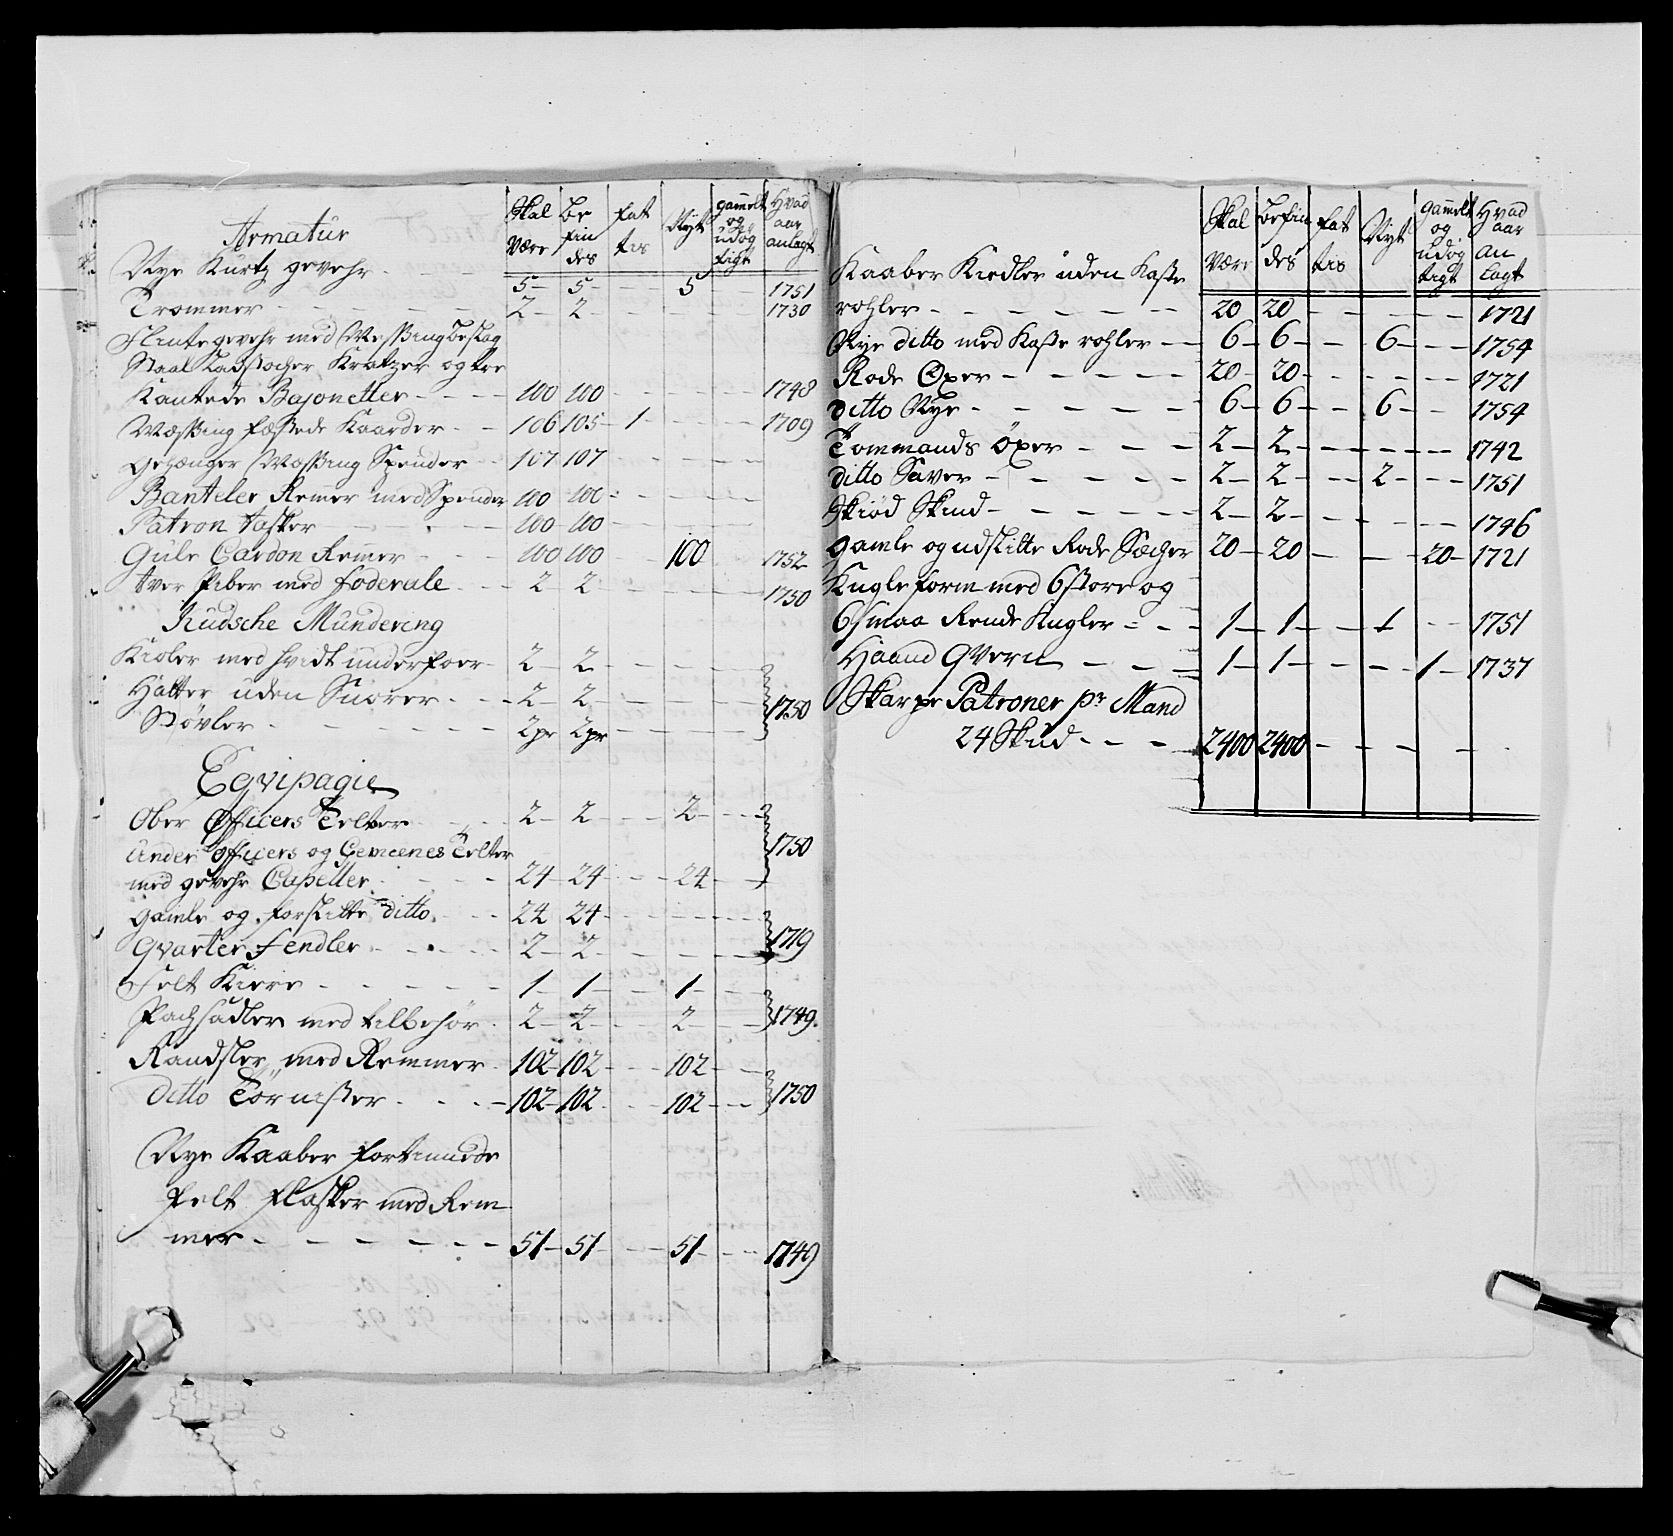 Armatur
Skal Være | Be fin des | fat tes | Nyt | gammelt og udög tigt | Hvad aar anlagt
Nye Kurtz gevehr - - - 5 - 5 - - 5 - 1751
Trommer - - - 2 - 2 - - - 1730
Flinte gevehr med Messing beslag
Staal Ladstocher, Kratzer og tre
Kantede Bajonetter - - - 100 100 - - - 1748
Messing fæstede Kaarder - - 106 105 - 1 - - - 1709
Gehænger Messing Spender - 107 107 - - -
Banteler Remer med Spender 100 100 - - -
Patron tasker - - - 100 100 - - -
Gule Cardon Remer - - - 100 100 - 100 - 1752
tver Piber med foderale - - 2 - 2 - - - 1750
Mundering
Kioler med hvidt underfoer - 2 - 2 - - -
Hatter uden Snorer - - - 2 - 2 - - - 1750
Støvler - - - 2 pr 2 pr - - -
Eqvipagie
Ober Officers Telter - - - 2 - 2 - - 2 - -
Under Officers og Gemeenes Telter 1750
med gevehr Capeller - - - 24 - 24 - - 24 - -
gamle og forslitte ditto. - - 24 24 - - -
Qvarter fendler - - - 2 - 2 - - - 1719
Felt Kiere - - - 1 - 1 - - 1 - -
Pachsadler med tilbehør - 2 - 2 - - 2 - - 1749.
Randsler med Remmer - 102 - 102 - - 102 - -
ditto Törnister - - - 102 - 102 - - 102 - - 1750
Nye Kaaber fortinnede
felt flasker med Rem
mer - - - 51 - 51 - - 51 - - 1749
Skal Være | befin des | fat tes | Nyt | gammelt og udög tigt | Hvad aar an lagt
Kaaber Kiedler uden Kaste
rohler - - - 20 20 - - - 1721
Nye ditto med Kaste rohler - - 6 - 6 - - 6 - - 1754
Rode Öxer - - - 20 - 20 - - - 1721
ditto Nye - - - 6 - 6 - - 6 - - 1754
Tommands Öxer - - - 2 - 2 - - - 1742
ditto Saver - - - 2 - 2 - - 2 - - 1751
Skiød Skind - - - 2 - 2 - - - 1746
gamle og udslitte Rode Sæcher 20 - 20 - - 20 - 1721
Kugle form med 6 store og
6 smaa Rende Kugler - - - 1 - 1 - - 1 - - 1751
Haand Qvern - - - 1 - 1 - - - 1 - 1737
Skarpe Patroner pr Mand
24 Skud - - - 2400 2400 - - -